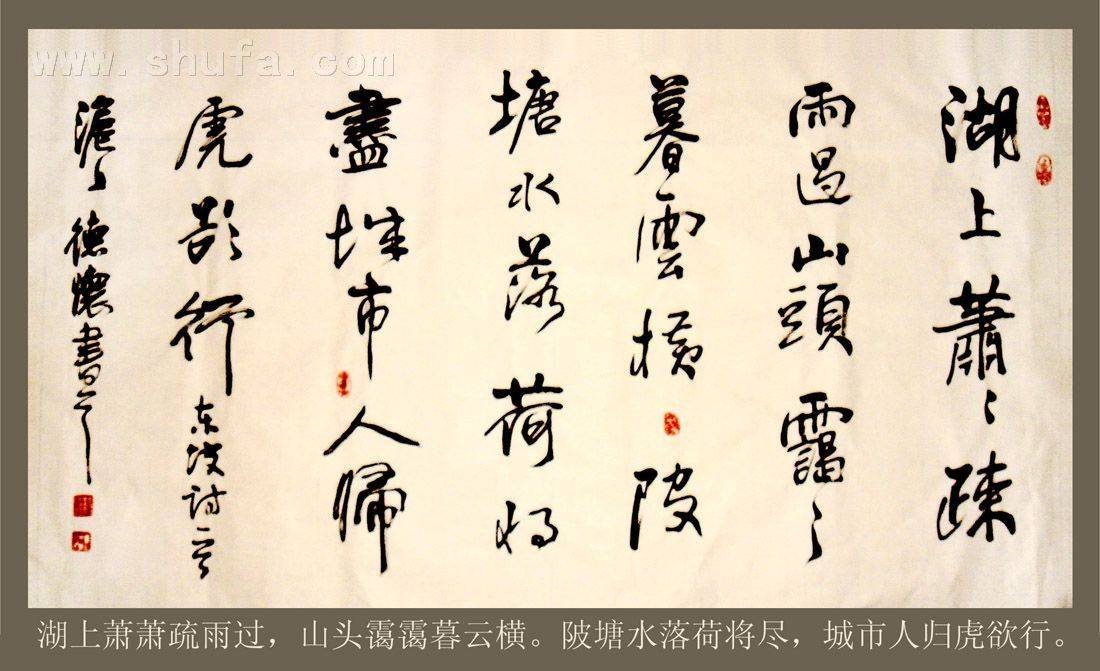 www.shufa.com
湖上蕭々疎
雨過山頭靄々
暮雲橫陂
塘水落荷将
盡城市人歸
虎欲行东坡詩
德懷書
湖上萧萧疏雨过，山头霭霭暮云横。陂塘水落荷将尽，城市人归虎欲行。